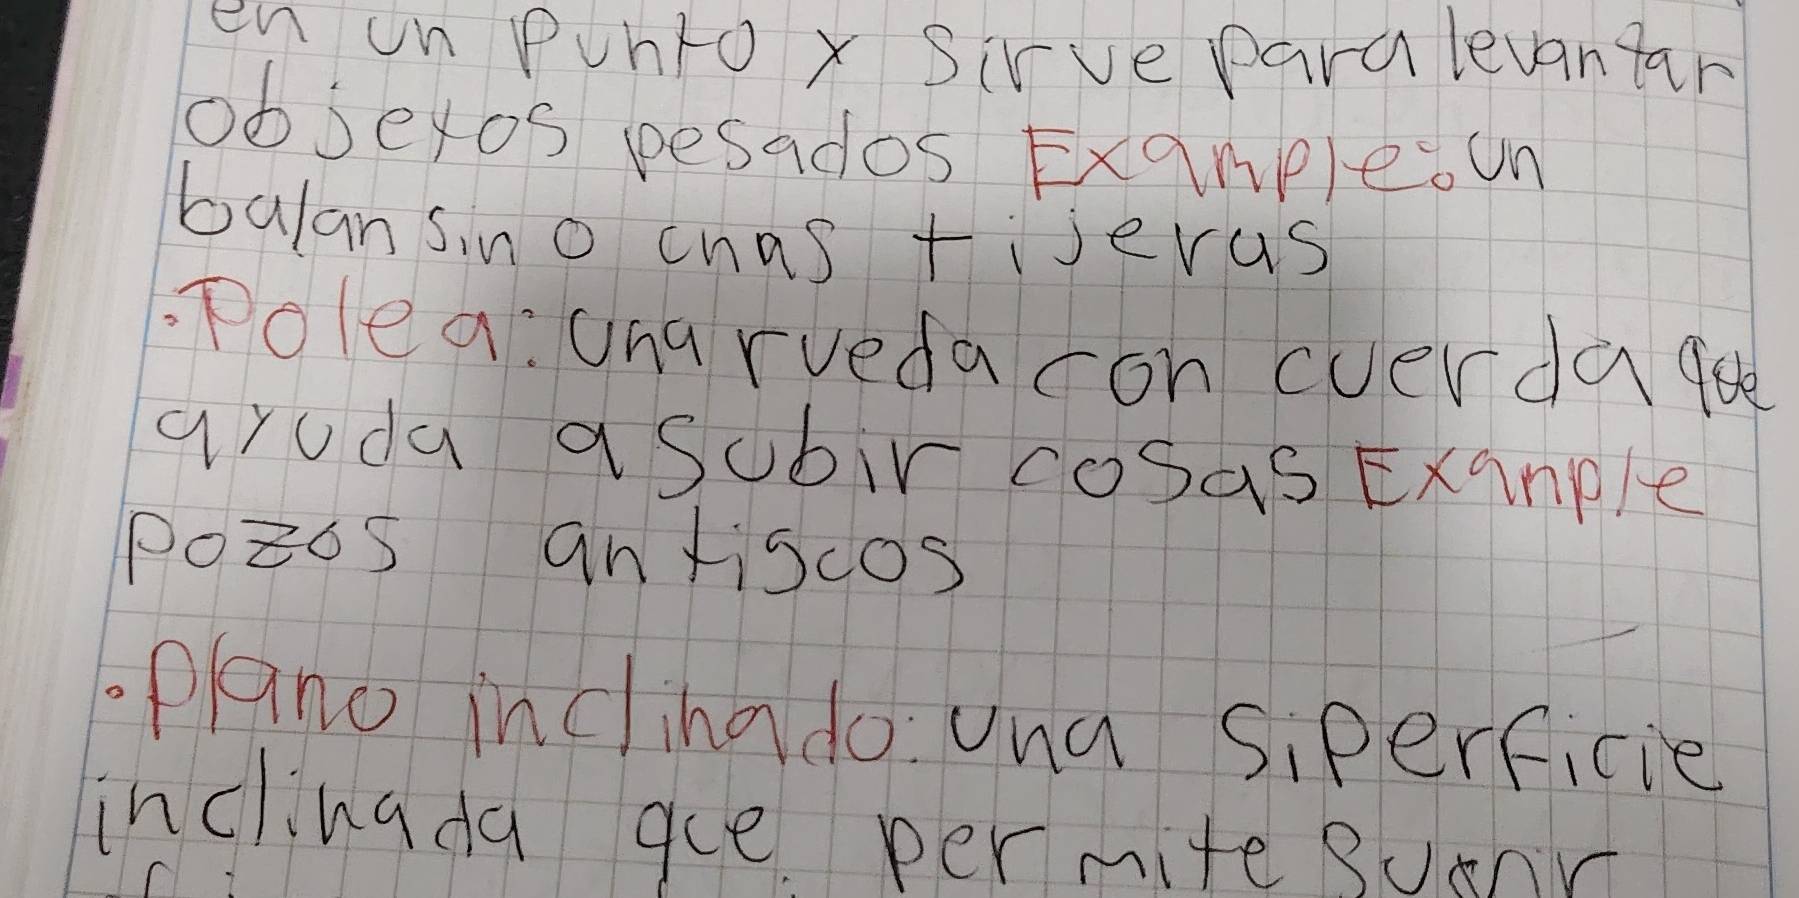 en un punto y sirve para levantar
objetos pesados Example: un
balansin o unas tijeras
• Polea: una rueda con cuerda que
ayuda a subir cosas Exanple
pozos antigcos
• plano inclinado: una siperficie
inclinada que permite